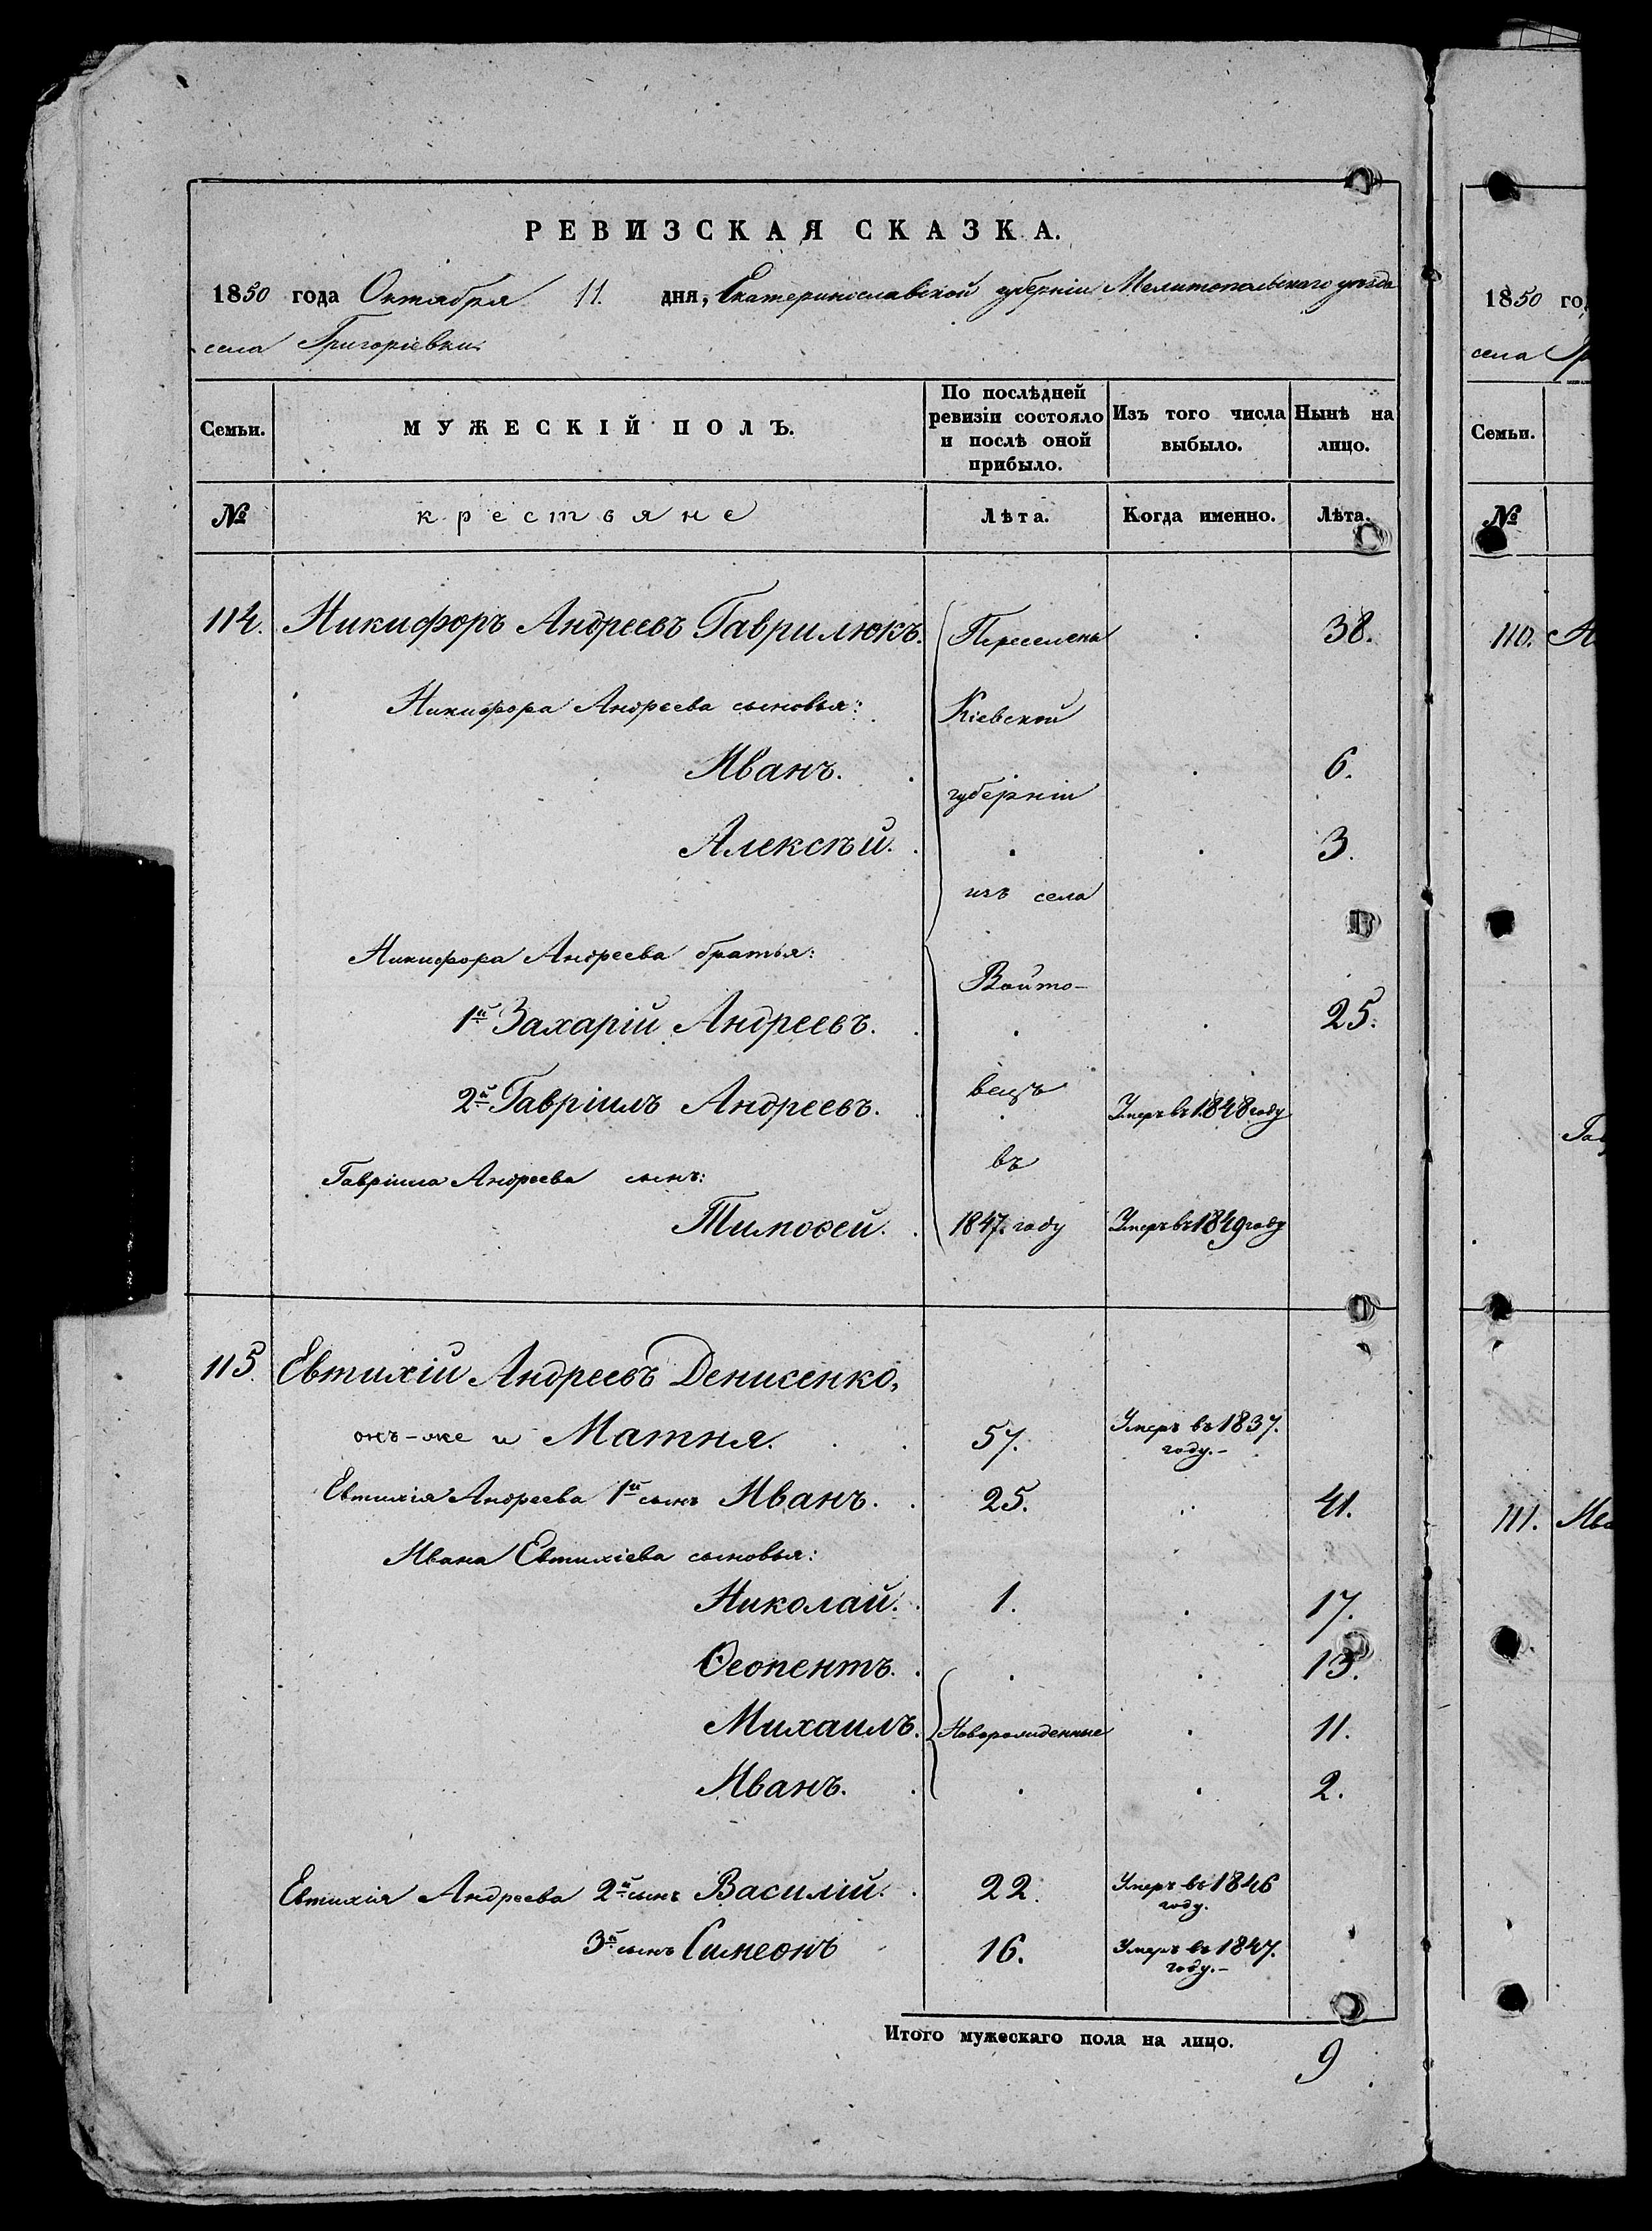 РЕВИЗСКАЯ СКАЗКА.
1850 года Октября 11. дня, Екатеринославской губерніи Мелитопольскаго уѣзда
села Григоріевки.
Семьи. МУЖЕСКІЙ ПОЛЪ. По послѣдней ревизіи состояло и послѣ оной прибыло. Изъ того числа выбыло. Нынѣ на лицо.
№ крестьяне Лѣта. Когда именно. Лѣта.
114. Никифоръ Андреевъ Гаврилюкъ. Переселены 38.
Никифора Андреева сыновья: Кіевской
Иванъ. 6.
губерніи
Алексѣй. 3.
изъ села
Никифора Андреева братья:
Войто-
1й Захарій Андреевъ. 25.
вецъ
2й Гавріилъ Андреевъ. Умеръ въ 1848 году
въ
Гавріила Андреева сынъ:
Тимоѳей. 1847. году Умеръ въ 1849 году
115. Евтихій Андреевъ Денисенко,
онъ-же и Матня. 57. Умеръ въ 1837. году.-
Евтихія Андреева 1й сынъ Иванъ. 25. 41.
Ивана Евтихіева сыновья:
Николай. 1. 17.
Ѳеопентъ. 13.
Михаилъ. Новорожденные 11.
Иванъ. 2.
Евтихія Андреева 2й сынъ Василій. 22. Умеръ въ 1846 году.
3й сынъ Симеонъ 16. Умеръ въ 1847. году.-
Итого мужескаго пола на лицо.
9
1850 го
села Гр
Семьи.
№
110. Н
Гав
111. Ива